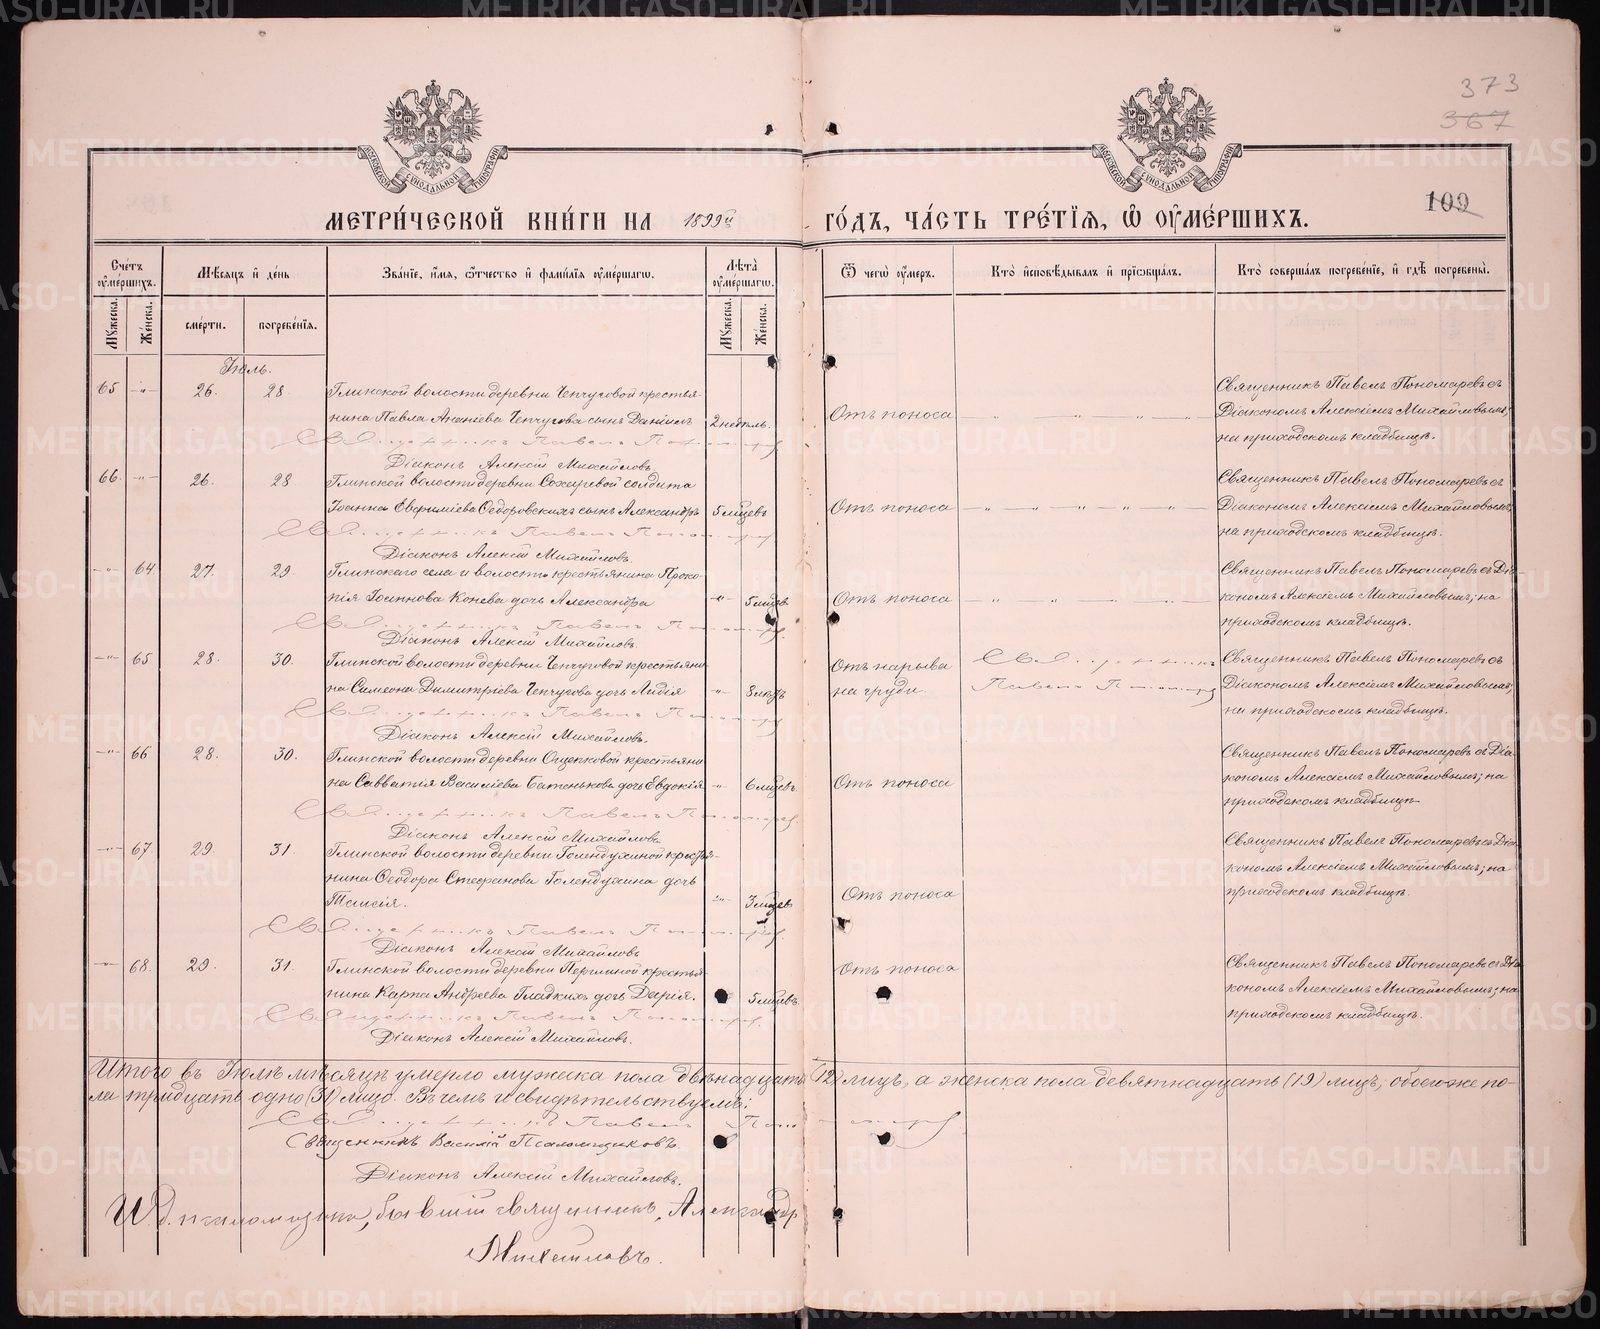 373
367
109
МОСКОВСКОЙ СѴНОДАЛЬНОЙ ТИПОГРАФІИ
МОСКОВСКОЙ СѴНОДАЛЬНОЙ ТИПОГРАФІИ
МЕТРИ́ЧЕСКОЙ КНИ́ГИ НА 1899й ГО́ДЪ, ЧА́СТЬ ТРЕ́ТІѦ, Ѡ ОУ҆МЕ́РШИХЪ.
Счётъ оу҆ме́ршихъ.
Мꙋжеска.
Же́нска.
Мѣ́сяцъ и҆ де́нь
сме́рти.
погребе́нія.
Зва́ніе, и҆́мя, ѻ҆́тчество и҆ фами́лія оу҆ме́ршагѡ.
Лѣта̀ оу҆ме́ршагѡ.
Мꙋжеска.
Же́нска.
Ѿ чегѡ̀ оу҆́меръ.
Кто̀ и҆сповѣ́дывалъ и҆ прїѡбща́лъ.
Кто̀ соверша́лъ погребе́ніе, и҆ гдѣ̀ погребены̀.
Іюль.
65 -"- 26. 28 Глинской волости деревни Чепчуговой крестья-
нина Павла Ананіева Чепчугова сынъ Даніилъ 2 недѣль. Отъ поноса
Священникъ Павелъ Пономаревъ съ
Діакономъ Алексіемъ Михайловымъ;
на приходскомъ кладбищѣ.
Священникъ Павелъ Пономарев
Діаконъ Алексій Михайловъ
66. -"- 26. 28 Глинской волости деревни Сохаревой солдата
Іоанна Евфиміева Ѳедоровскихъ сынъ Александръ 5 мѣсяцевъ Отъ поноса
Священникъ Павелъ Пономаревъ съ
Діакономъ Алексіемъ Михайловымъ,
на приходскомъ кладбищѣ.
Священникъ Павелъ Пономарев
Діаконъ Алексій Михайловъ.
-"- 64 27. 29. Глинскаго села и волости крестьянина Проко-
пія Іоаннова Конева дочь Александра -"- 5 мѣсяцевъ Отъ поноса
Священникъ Павелъ Пономаревъ съ Діа-
кономъ Алексіемъ Михайловымъ; на
приходскомъ кладбищѣ.
Священникъ Павелъ Пономарев
Діаконъ Алексій Михайловъ.
-"- 65 28. 30. Глинской волости деревни Чепчуговой крестьяни-
на Симеона Димитріева Чепчугова дочь Лидія -"- 8 лѣтъ Отъ нарыва
на груди.
Священникъ
Павелъ Пономарев
Священникъ Павелъ Пономаревъ съ
Діакономъ Алексіемъ Михайловымъ;
на приходскомъ кладбищѣ.
Священникъ Павелъ Пономарев
Діаконъ Алексій Михайловъ.
-"- 66 28. 30. Глинской волости деревни Ощепковой крестьяни-
на Савватія Василіева Батенькова дочь Евдокія -"- 6 мѣсяцевъ. Отъ поноса
Священникъ Павелъ Пономаревъ съ Діа-
кономъ Алексіемъ Михайловымъ; на
приходскомъ кладбищѣ.
Священникъ Павелъ Пономарев
Діаконъ Алексій Михайловъ
-"- 67. 29. 31. Глинской волости деревни Голендухиной крестья-
нина Ѳеодора Стефанова Голендухина дочь
Таисія. -"- 3 мѣсяцев Отъ поноса
Священникъ Павелъ Пономаревъ съ Діа-
кономъ Алексіемъ Михайловымъ; на
приходскомъ кладбищѣ.
Священникъ Павелъ Пономарев
Діаконъ Алексій Михайловъ
-"- 68. 29. 31. Глинской волости деревни Першиной крестья-
нина Карпа Андреева Гладкихъ дочь Дарія. 5 мѣсяцевъ Отъ поноса
Священникъ Павелъ Пономаревъ съ Діа-
кономъ Алексіемъ Михайловымъ; на
приходскомъ кладбищѣ.
Священникъ Павелъ Пономарев.
Діаконъ Алексій Михайловъ.
Итого въ Іюлѣ мѣсяцѣ умерло мужеска пола двѣнадцать (12) лицъ, а женска пола девятнадцать (19) лицъ, обоего же по-
ла тридцать одно (31) лицо. Въ чемъ и свидѣтельствуемъ:
Священникъ Павелъ Пономарев
Священникъ Василій Псаломщиковъ.
Діаконъ Алексій Михайловъ.
И. д. псаломщика, бывшій священникъ, Александр
Михайловъ.
METRIKI.GASO-URAL.RU